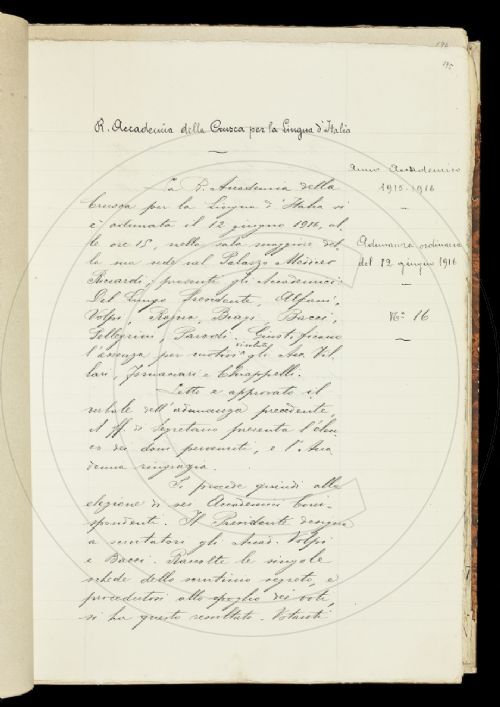 195
R. Accademia della Crusca per la Lingua d'Italia
Anno Accademico
1915-1916
Adunanza ordinaria
del 12 giugno 1916
N.º 16
La R. Accademia della
Crusca per la Lingua d'Italia si
è adunata il 12 giugno 1916, al-
le ore 15, nella sala maggiore del-
la sua sede nel Palazzo Mediceo
Riccardi, presenti gli Accademici:
Del Lungo Presidente, Alfani,
Volpi, Rajna, Biagi, Bacci,
Pellegrini, Parodi. Giustificano
l'assenza per motivi di salute gli Acc. Vil-
lari, Fornaciari e Chiappelli.
Letto e approvato il
verbale dell'adunanza precedente,
il ff. di Segretario presenta l'elen-
co dei doni pervenuti, e l'Acca-
demia ringrazia.
Si procede quindi alla
elezione di sei Accademici Corri-
spondenti. Il Presidente designa
a scrutatori gli Accad. Volpi
e Bacci. Raccolte le singole
schede dello scrutinio segreto, e
procedutosi allo spoglio dei voti,
si ha questo resultato. Votanti